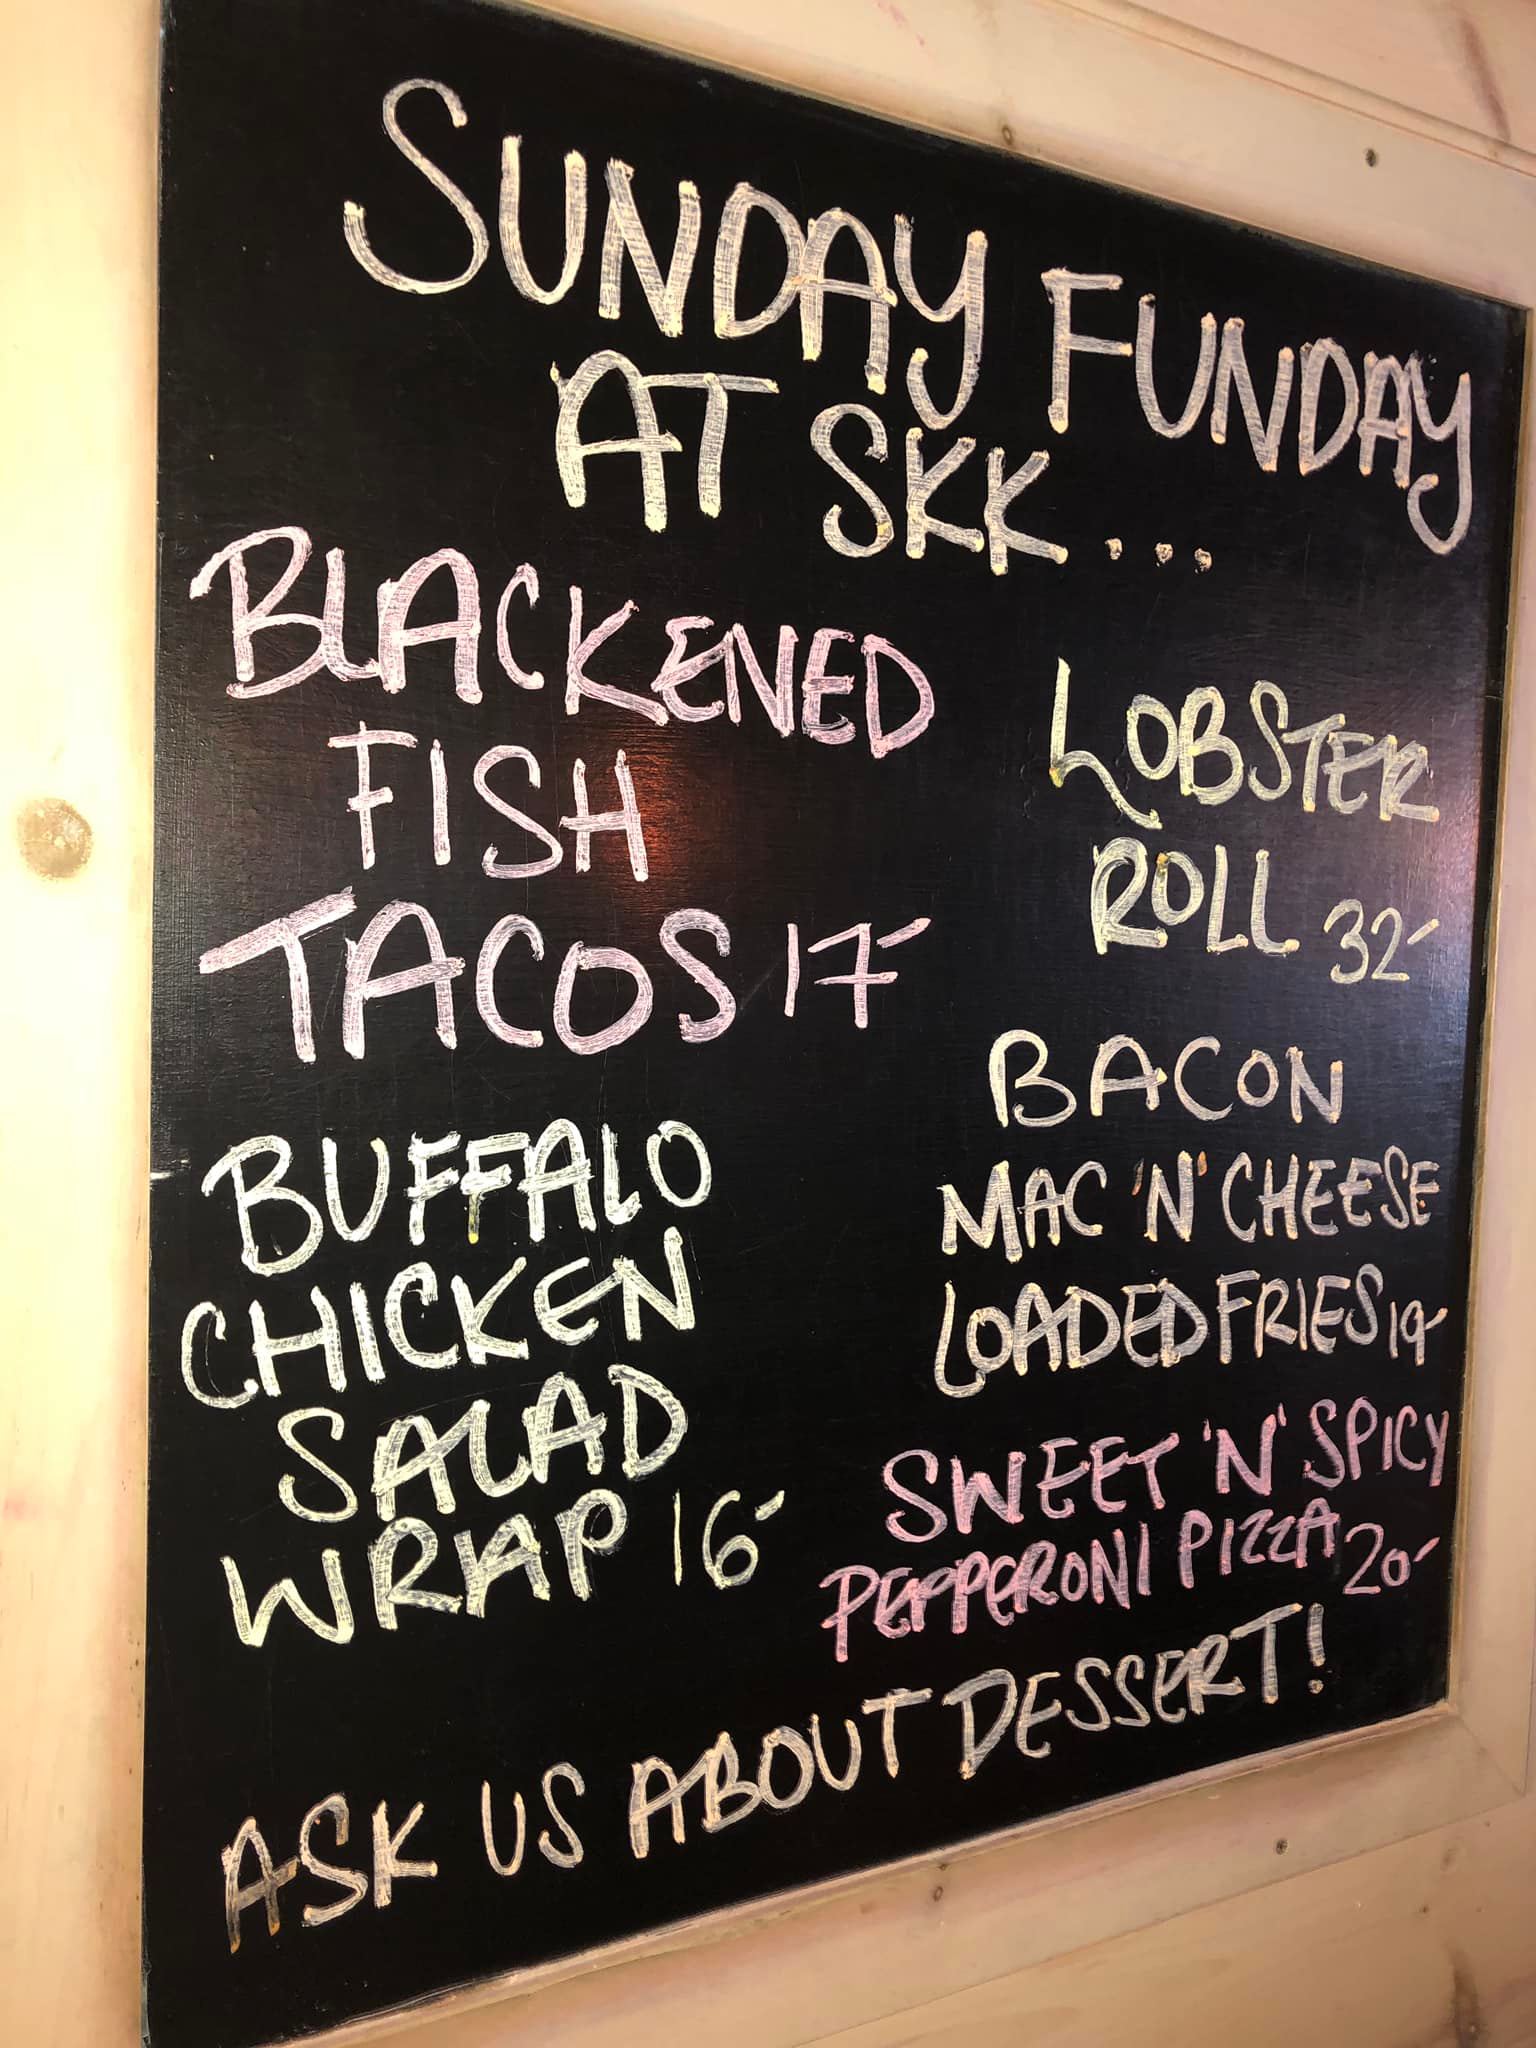 SUNDAY FUNDAY
AT SKK...
BLACKENED
FISH
TACOS 17-
BUFFALO
CHICKEN
SALAD
WRAP 16-
LOBSTER
ROLL 32-
BACON
MAC 'N' CHEESE
LOADED FRIES 19-
SWEET 'N' SPICY
PEPPERONI PIZZA 20-
ASK US ABOUT DESSERT!